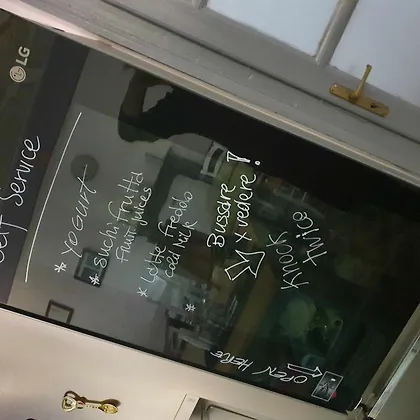 LG
Self Service
* YOGURT
* Succhi Frutta
Fruit juices
* Latte freddo
cold milk
*
Bussare
x vedere!
Knock
twice
OPEN HERE